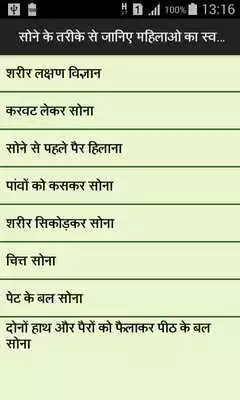 100% 13:16
सोने के तरीके से जानिए महिलाओ का स्व...
शरीर लक्षण विज्ञान
करवट लेकर सोना
सोने से पहले पैर हिलाना
पांवों को कसकर सोना
शरीर सिकोड़कर सोना
चित्त सोना
पेट के बल सोना
दोनों हाथ और पैरों को फैलाकर पीठ के बल
सोना